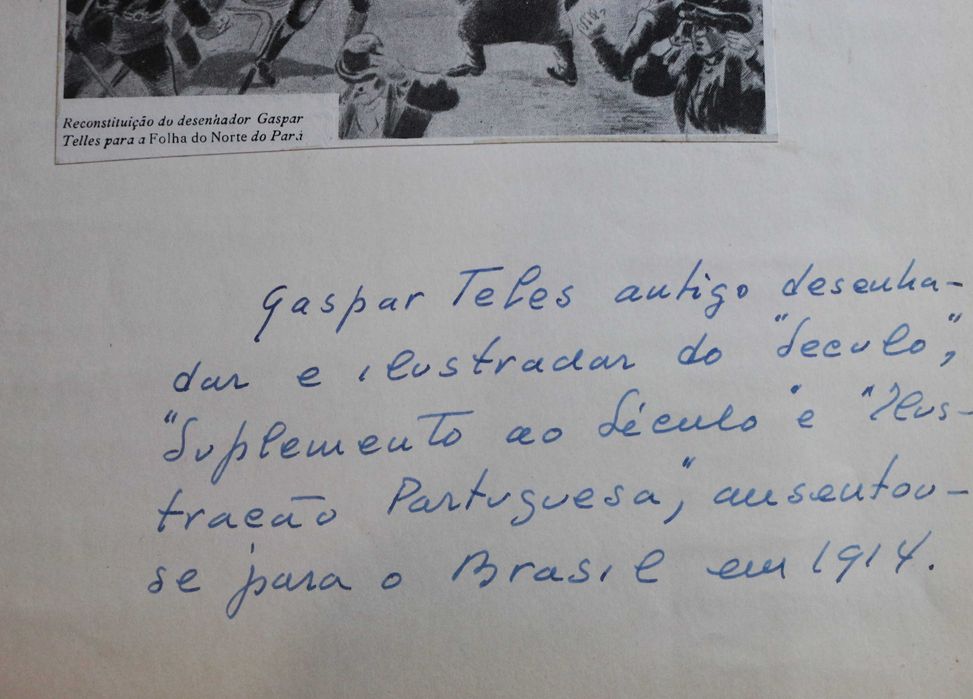 Reconstituição do desenhador Gaspar
Telles para a Folha do Norte do Pará
Gaspar Teles antigo desenha-
dor e ilustrador do "Século",
"Suplemento ao Século" e "Ilus-
tração Portuguesa", ausentou-
se para o Brasil em 1914.